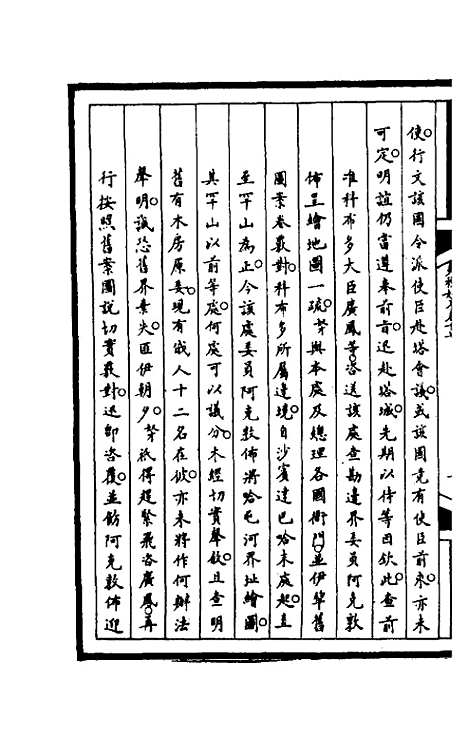 使行文該國令派使臣赴塔會議或該國竟有使臣前來亦未
可定明誼仍當遵奉前旨迅赴塔城先期以待等因欽此查前
准科布多大臣廣鳳等咨送該處查勘邊界委員阿克敦
佈呈繪地圖一疏茅與本處及總理各國衙門並伊犂舊
圖案卷覈對科布多所屬邊境自沙賓達巴哈末處起直
至罕山為止今該處委員阿克敦佈將哈屯河界址繪圖
其罕山以前等處何處可以議分未經切實聲敘且查明
舊有木房原委現有俄人十二名在彼亦未將作何辦法
聲明誠恐舊界素失匪伊朝夕茅祇得趕緊飛咨廣鳳再
行按照舊案圖說切實覈對迅即咨覆並飭阿克敦佈迎